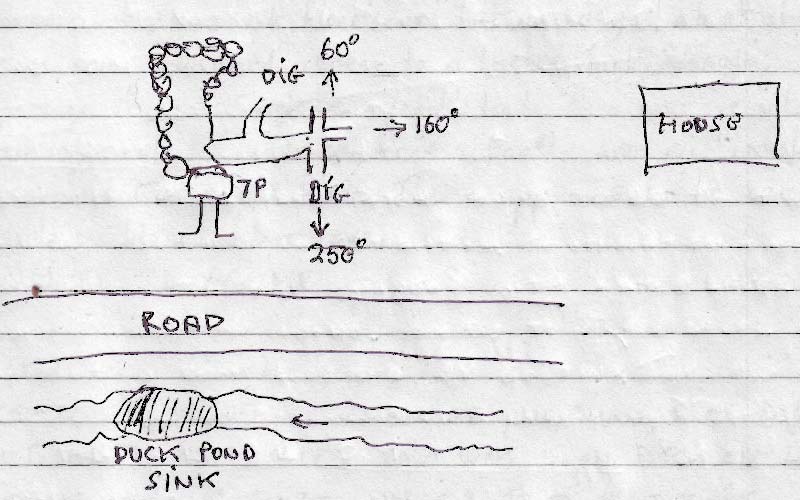 60°
DiG
160°
HOUSE
7P
DiG
250°
ROAD
DUCK POND
SiNK